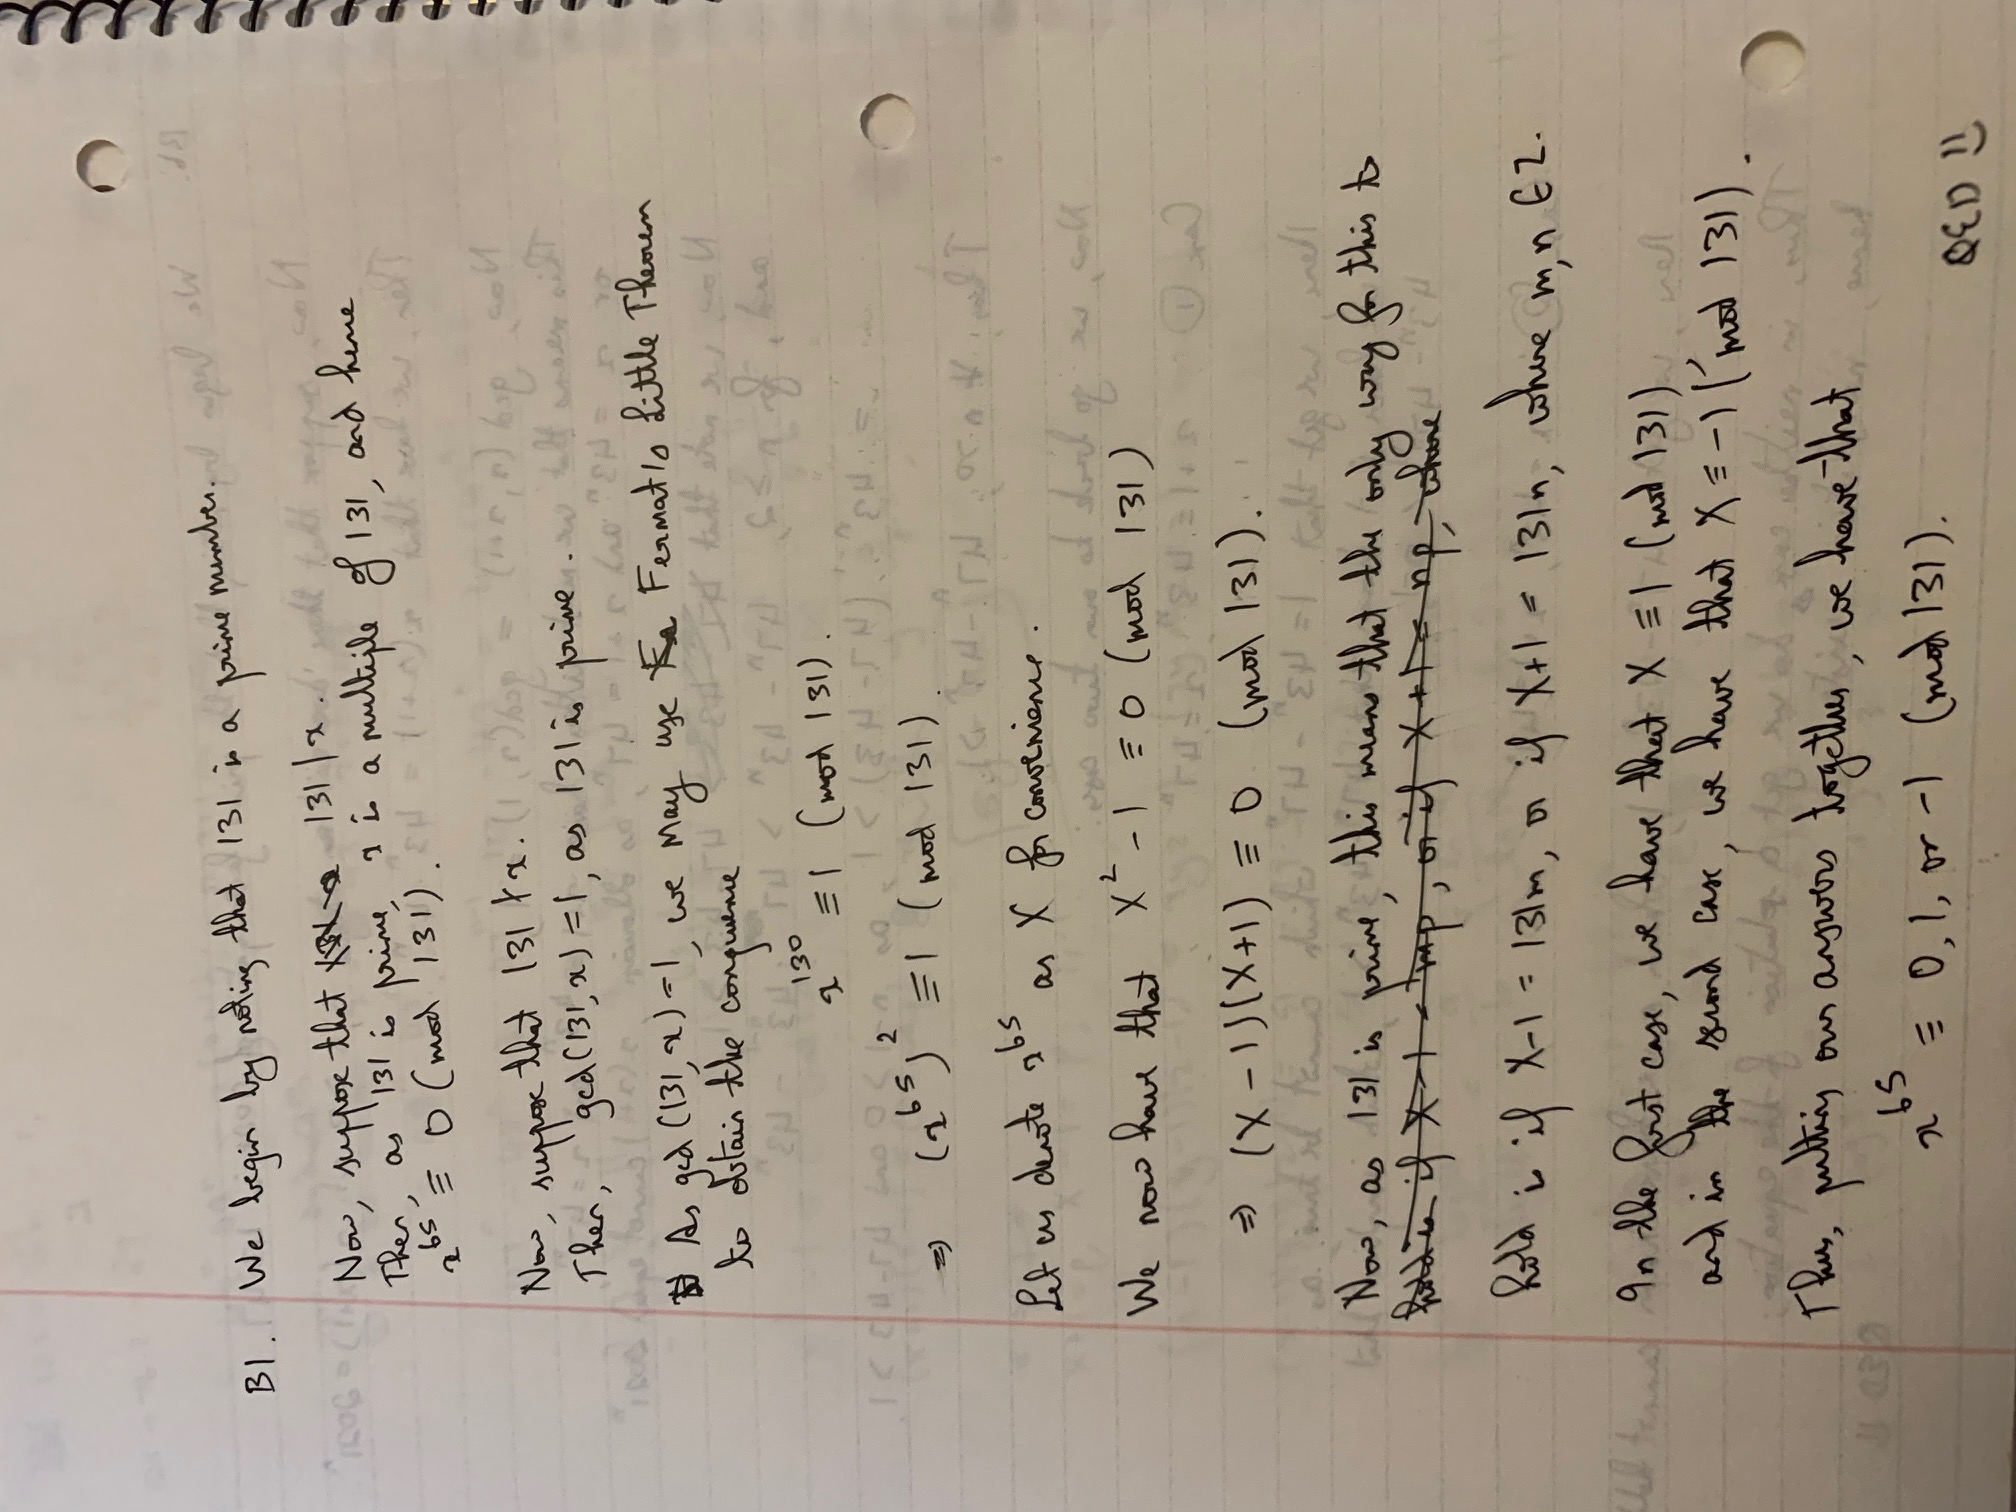 B1. We begin by noting that 131 is a prime number.
Now, suppose that 131 | x.
Then, as 131 is prime, x is a multiple of 131, and hence
x^65 ≡ 0 (mod 131).
Now, suppose that 131 ∤ x.
Then, gcd(131, x) = 1, as 131 is prime.
As gcd (131, x) = 1, we may use Fermat's Little Theorem
to obtain the congruence
x^130 ≡ 1 (mod 131).
⇒ (x^65)^2 ≡ 1 (mod 131).
Let us denote x^65 as X for convenience.
We now have that X^2 - 1 ≡ 0 (mod 131)
⇒ (X - 1)(X + 1) ≡ 0 (mod 131).
Now, as 131 is prime, this means that the only way for this to
hold is if X - 1 = mp, or if X + 1 = np, where
hold is if X-1 = 131m, or if X+1 = 131n, where m,n ∈ Z.
In the first case, we have that X ≡ 1 (mod 131)
and in the second case, we have that X ≡ -1 (mod 131).
Thus, putting our answers together, we have that
x^65 ≡ 0, 1, or -1 (mod 131).
QED